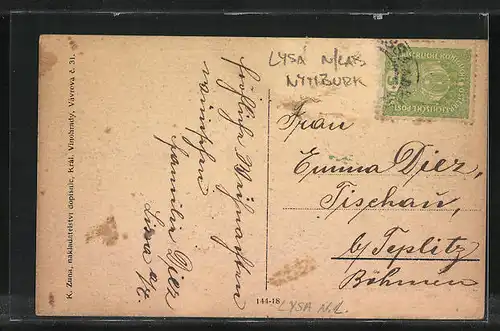 K. Zuna, nakladatelství dopisnic, Král. Vinohrady, Vávrova č. 31.
fröhliche Weihnachten
wünschen
Familie Diez
Lissa a/E.
LYSÁ N/LAB.
NYMBURK
Frau
Emma Diez,
Tischau,
b/ Teplitz
Böhmen
144-18
LYSA N.L.